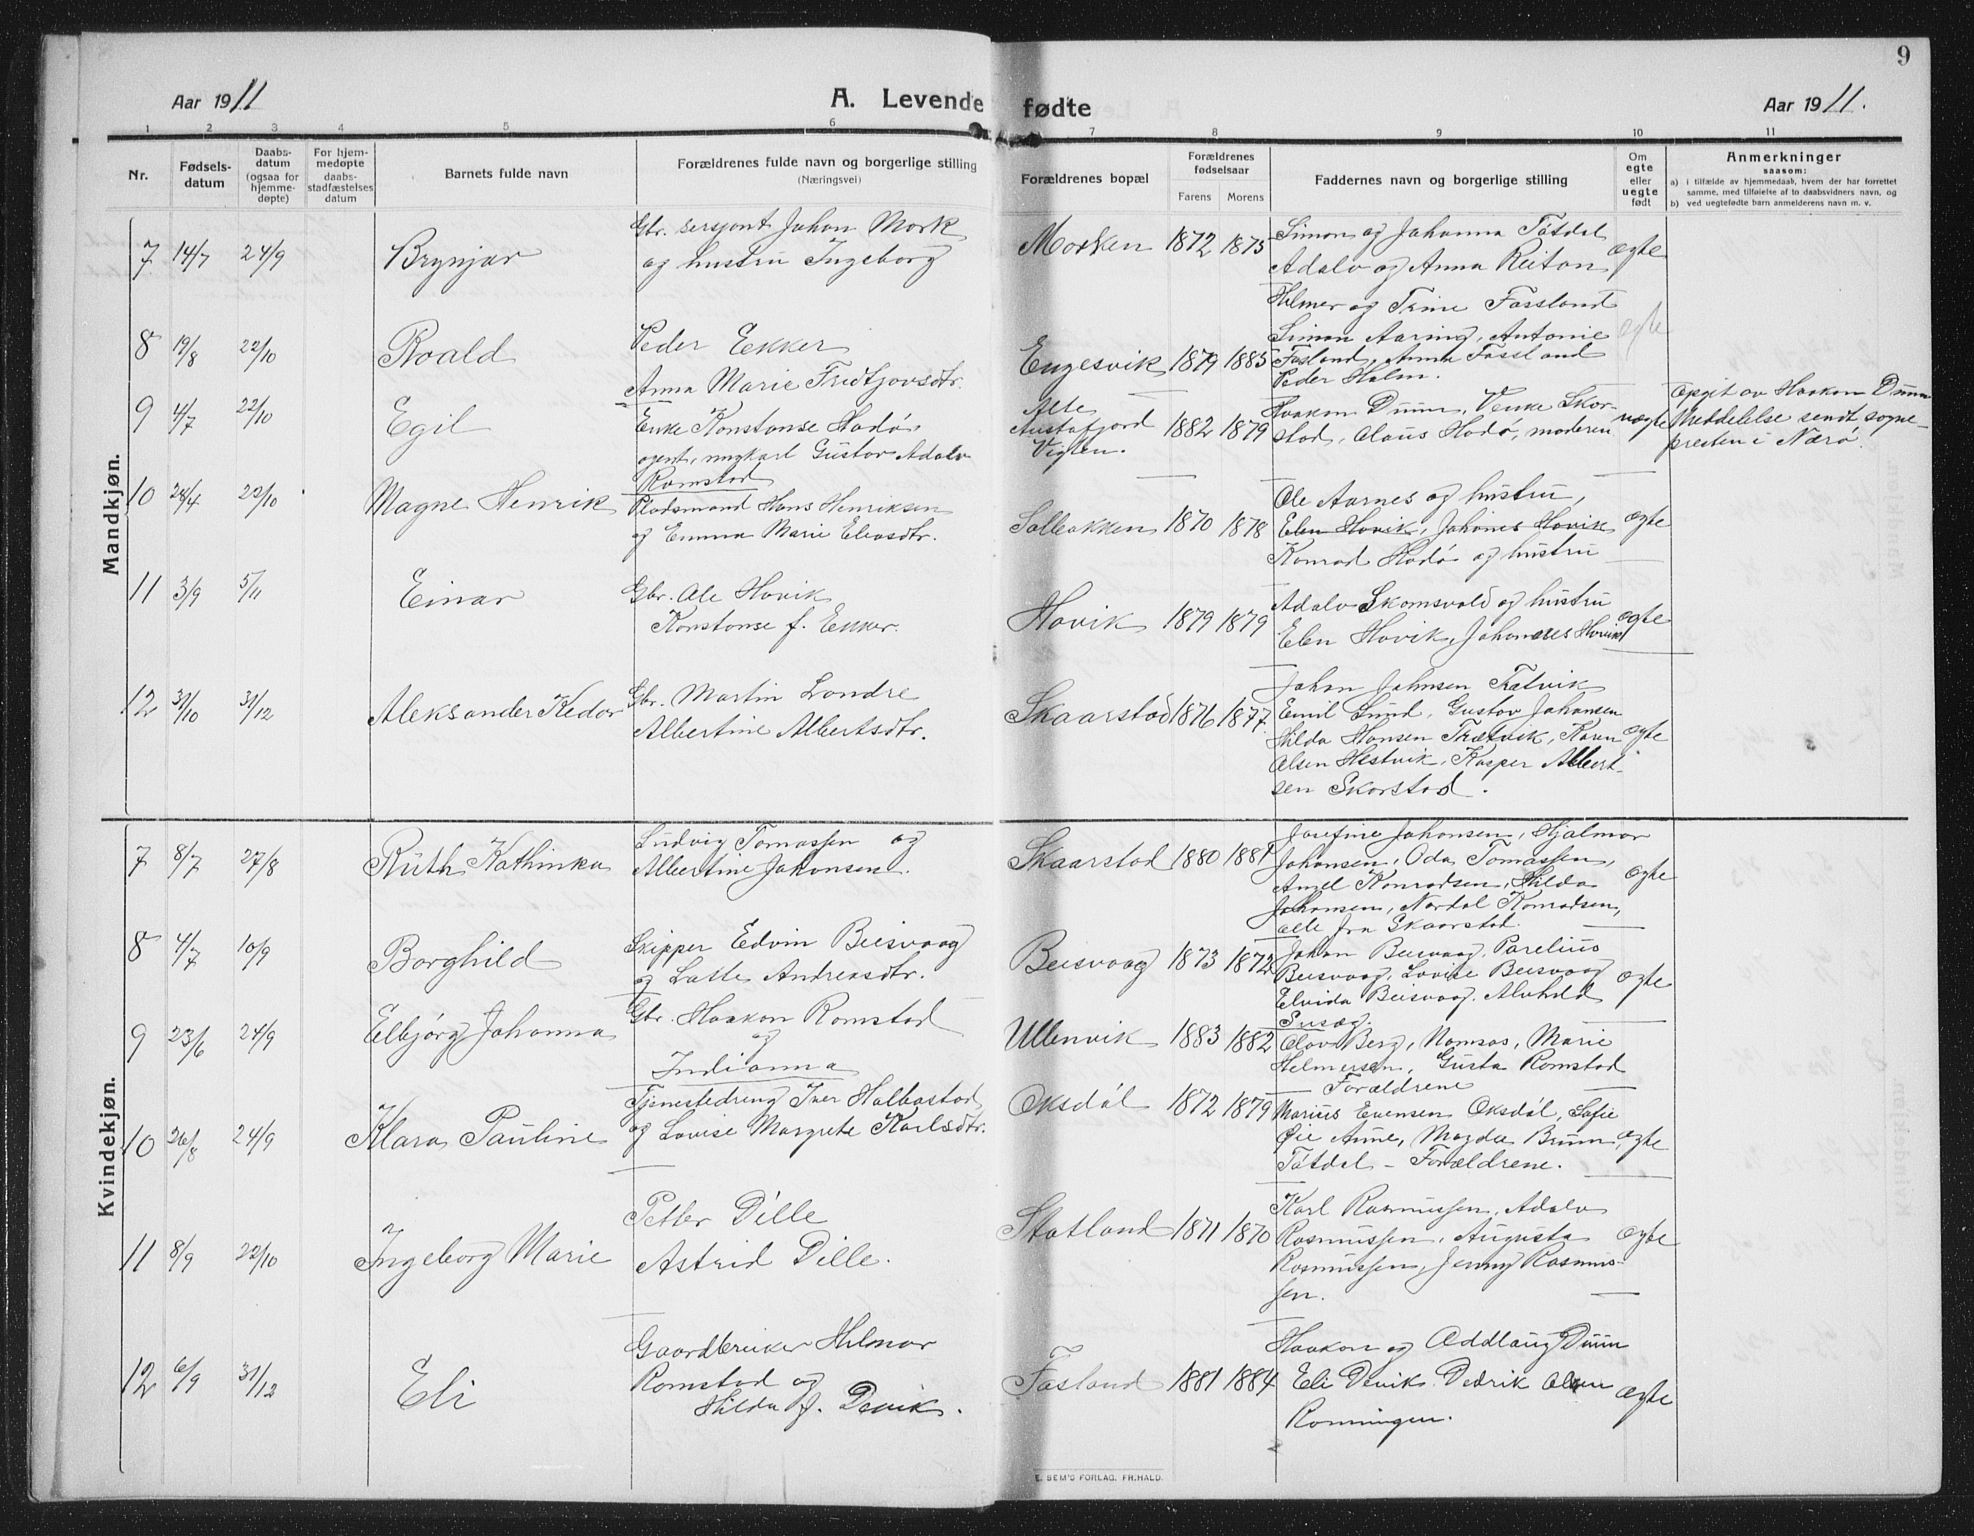 9
Aar 1911
A. Levende fødte
Aar 1911.
1 2 3 4 5 6 7 8 9 10 11
Nr.
Fødsels-
datum
Daabs-
datum
(ogsaa for
hjemme-
døpte)
For hjem-
medøpte
daabs-
stadfæstelses
datum
Barnets fulde navn
Forældrenes fulde navn og borgerlige stilling
(Næringsvei)
Forældrenes bopæl
Forældrenes
fødselsaar
Farens Morens
Faddernes navn og borgerlige stilling
Om
egte
eller
uegte
født
Anmerkninger
saasom:
a) i tilfælde av hjemmedaab, hvem der har forrettet
samme, med tilføielse af to daabsvidners navn, og
b) ved uegtefødte barn anmelderens navn m. v.
Mandkjøn.
7 14/7 24/9 Brynjar
Gbr. sersjant Johan Mork
og hustru Ingeborg
Morken 1872 1875
Simon og Johanna Tøtdal
Adolv og Anna Reitan
Hilmer og Trine Fossland
ægte
8 19/8 22/10 Roald
Peder Ekker
Anna Marie Fridtjovsdtr.
Engesvik 1879 1885
Simon Aaring, Antonie
Fosland, Anna Fossland
Peder Holm.
ægte
9 4/7 22/10 Egil
Enke Konstanse Hodø,
agent, ungkarl Gustav Adolv
Romstad
Alte
Austafjord
Vigten.
1882 1879
Haakon Duun, Venke Skor-
stad, Claus Hodø, moderen
uægte
Opgit av Haakon Duun
Meddelelse sendt sogne-
presten i Nærø.
10 28/4 22/10 Magne Henrik
Pladsmand Hans Henriksen
og Emma Marie Eliasdtr.
Solbakken 1870 1878
Ole Aarnes og hustru,
Elen Hovik, Johanes Hovik
Konrad Hodø og hustru
ægte
11 3/9 5/11 Einar
Gbr. Ole Hovik
Konstanse f. Ekker.
Hovik 1879 1879
Adolv Skomsvold og hustru
Elen Hovik, Johannes Hovik
ægte
12 31/10 31/12 Aleksander Kedor
Gbr. Martin Londre
Albertine Albertsdtr.
Skaarstad 1876 1877.
Johan Johnsen Trætvik
Emil Lund, Gustav Johansen
Hilda Hansen Trætvik, Karen
Olsen Hestvik, Kasper Albert-
sen Skorstad.
ægte
Kvindekjøn.
7 8/7 27/8 Ruth Kathinka
Ludvig Tomassen og
Albertine Johansen.
Skaarstad 1880 1881
Josefine Johansen, Hjalmar
Johansen, Oda Tomassen,
Angel Konradsen, Hilda
Johansen, Nordal Konradsen,
alle fra Skaarstad.
ægte
8 4/7 10/9 Borghild
Skipper Edvin Beisvaag
og Lalle Andreasdtr.
Beisvaag 1873 1872
Johan Beisvaag, Parelius
Beisvaag, Lovise Beisvaag
Elvida Beisvaag. Alvhild
Susæg.
ægte
9 23/6 24/9 Elbjørg Johanna
Gbr. Haakon Romstad
og
Indianna
Ullenvik 1883 1882
Olav Berg, Namsos, Marie
Helmersen, Gusta Romstad
Forældrene
10 26/8 24/9 Klara Pauline
Tjenestedreng Iver Halbostad
og Lovise Margrete Karlsdtr.
Oksdøl 1872 1879
Marius Evensen Oksdøl, Sofie
Øie Aune, Magda Bruun,
Tøtdal – Forældrene.
ægte
11 8/9 22/10 Ingeborg Marie
Petter Dille
Astrid Dille.
Statland 1871 1870
Karl Rasmussen, Adolv
Rasmussen, Augusta
Rasmussen, Jenny Rasmus-
sen.
ægte
12 6/9 31/12 Eli
Gaardbruker Hilmar
Romstad og
Hilda f. Devik.
Fosland 1881 1884
Haakon og Oddlaug Duun
Eli Devik Dedrik Olsen
Ronningen.
ægte
E. SEM'S FORLAG, FR:HALD.